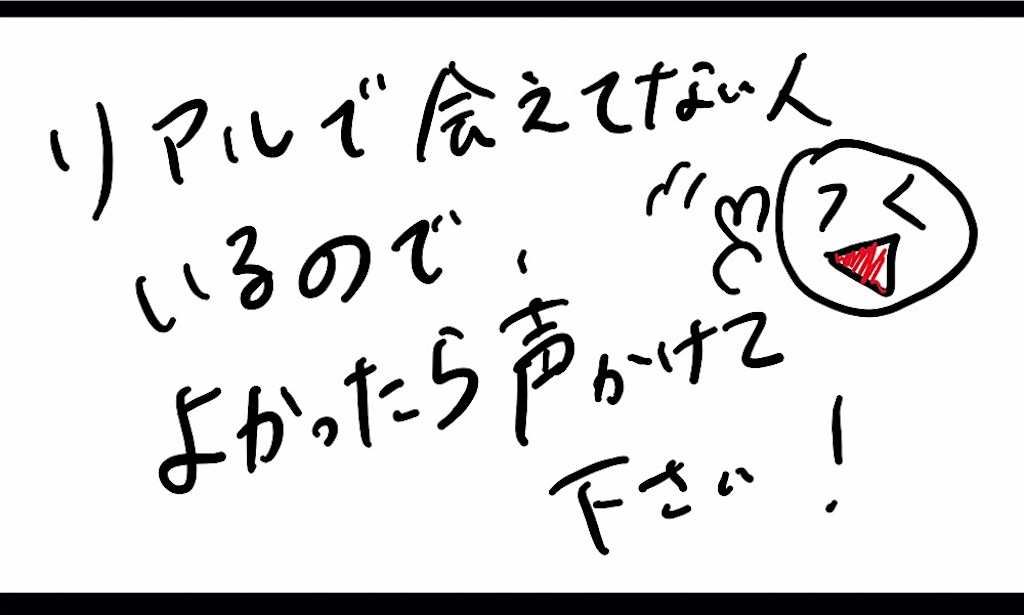 リアルで会えてない人
いるので、
よかったら声かけて
下さい!